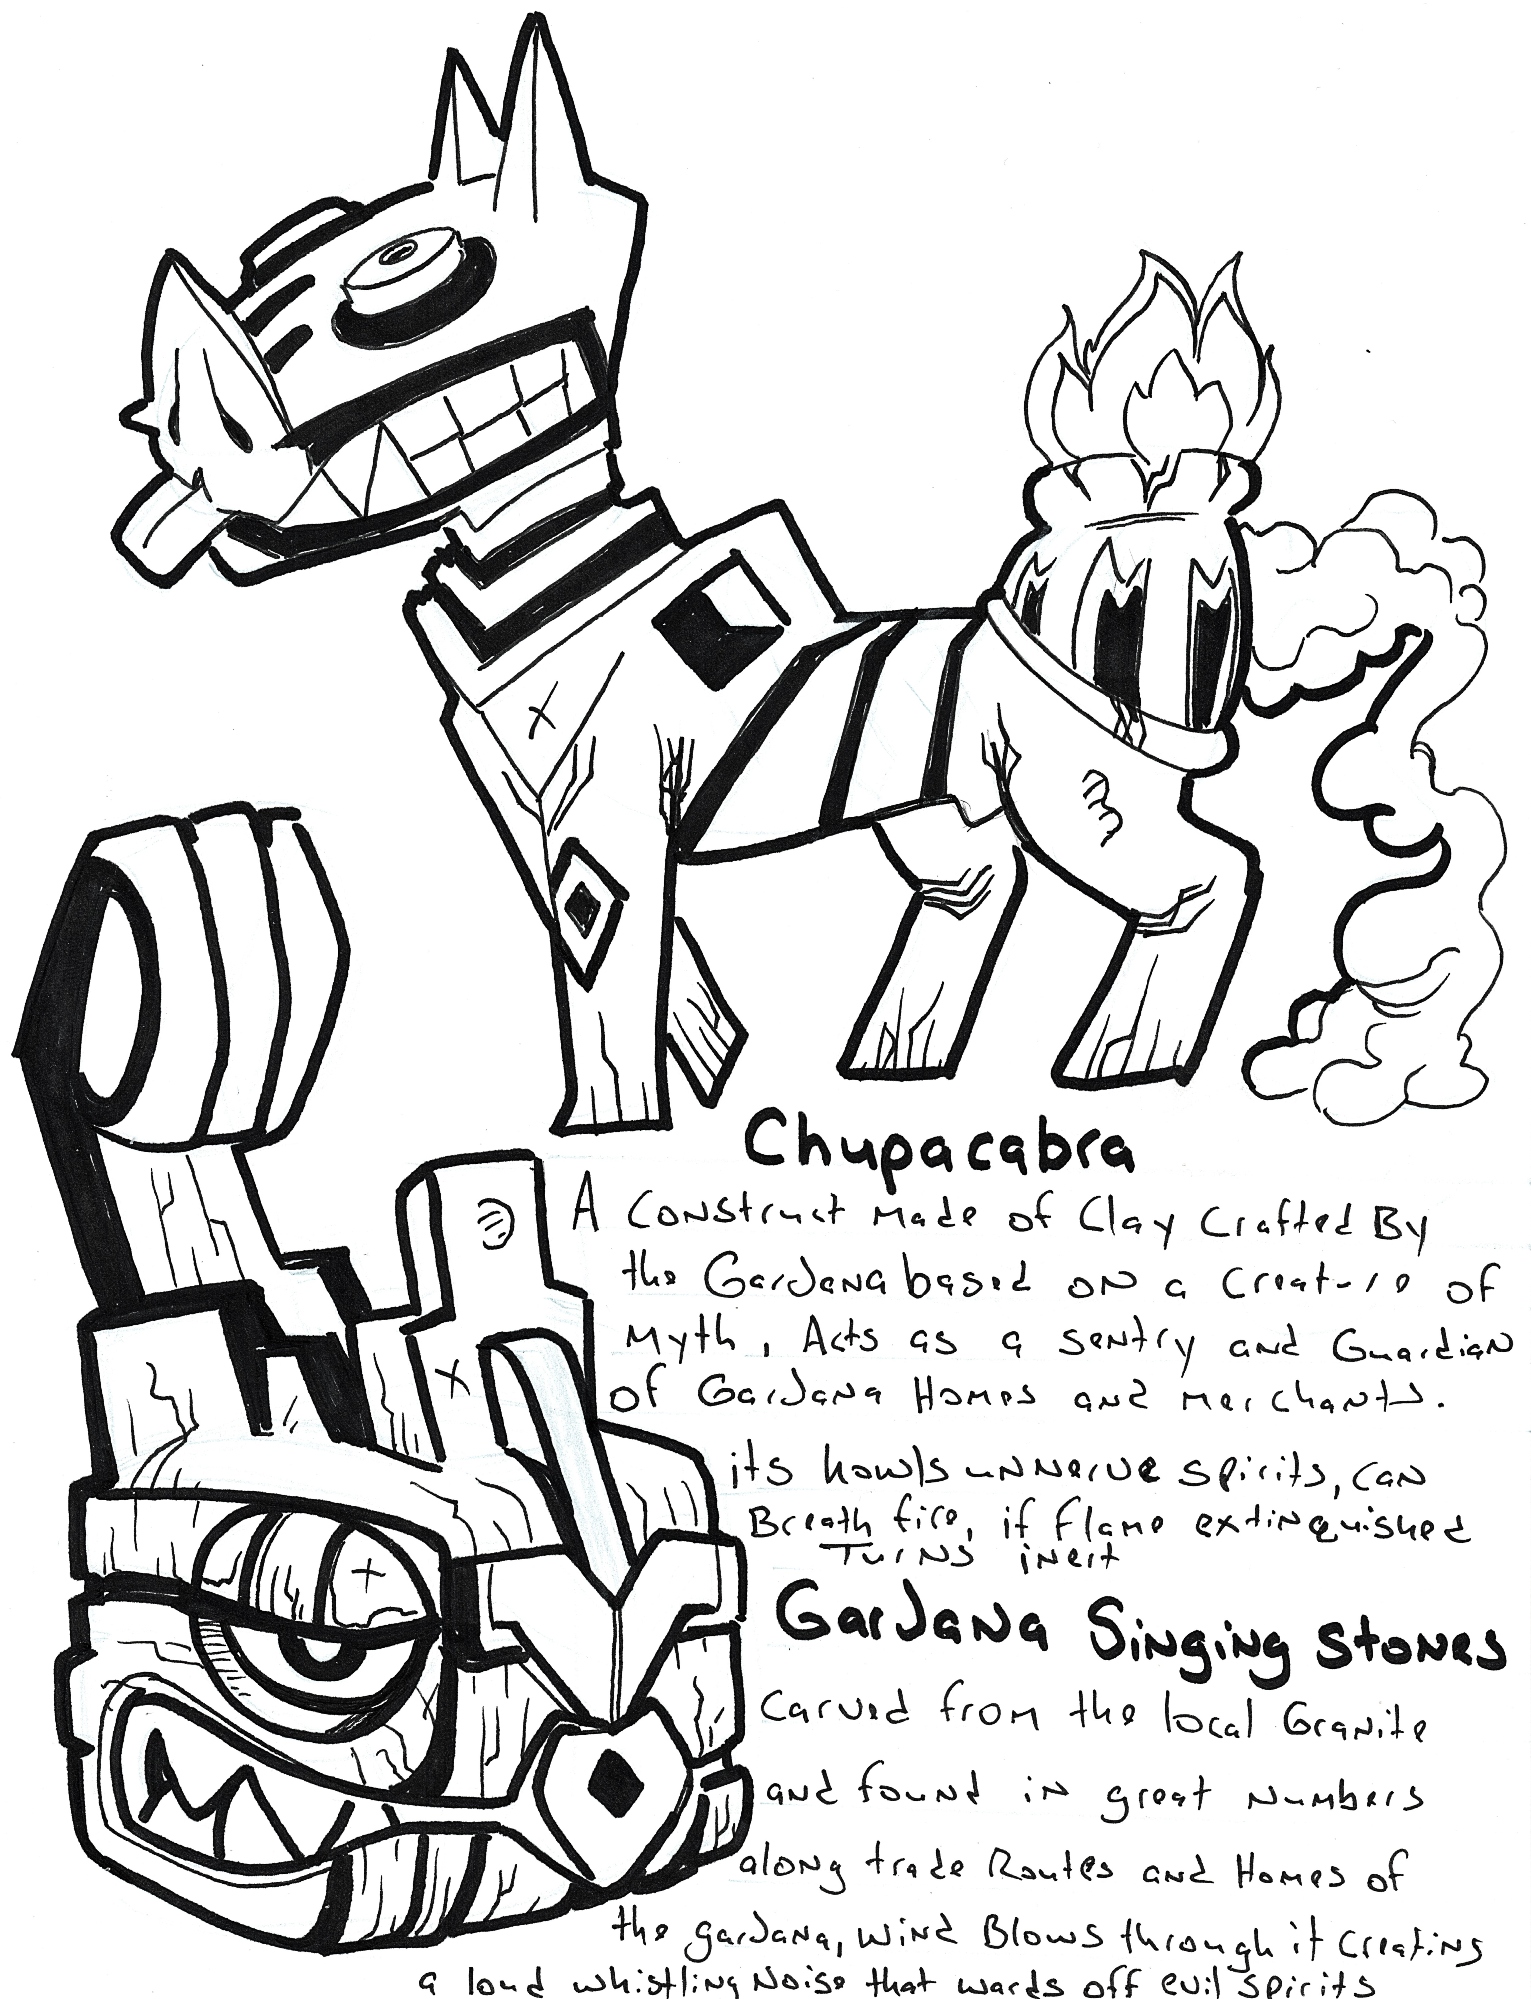 Chupacabra
A Construct Made of Clay Crafted By
the GarJana based on a Creature of
Myth, Acts as a sentry and Guardian
of GarJana Homes and merchants.
its howls unnerve spirits, can
Breath fire, if flame extinquished
Turns inert
GarJana Singing Stones
Carved from the local Granite
and found in great numbers
along trade Routes and Homes of
the garJana, wind Blows through it creating
a loud whistling noise that wards off evil spirits